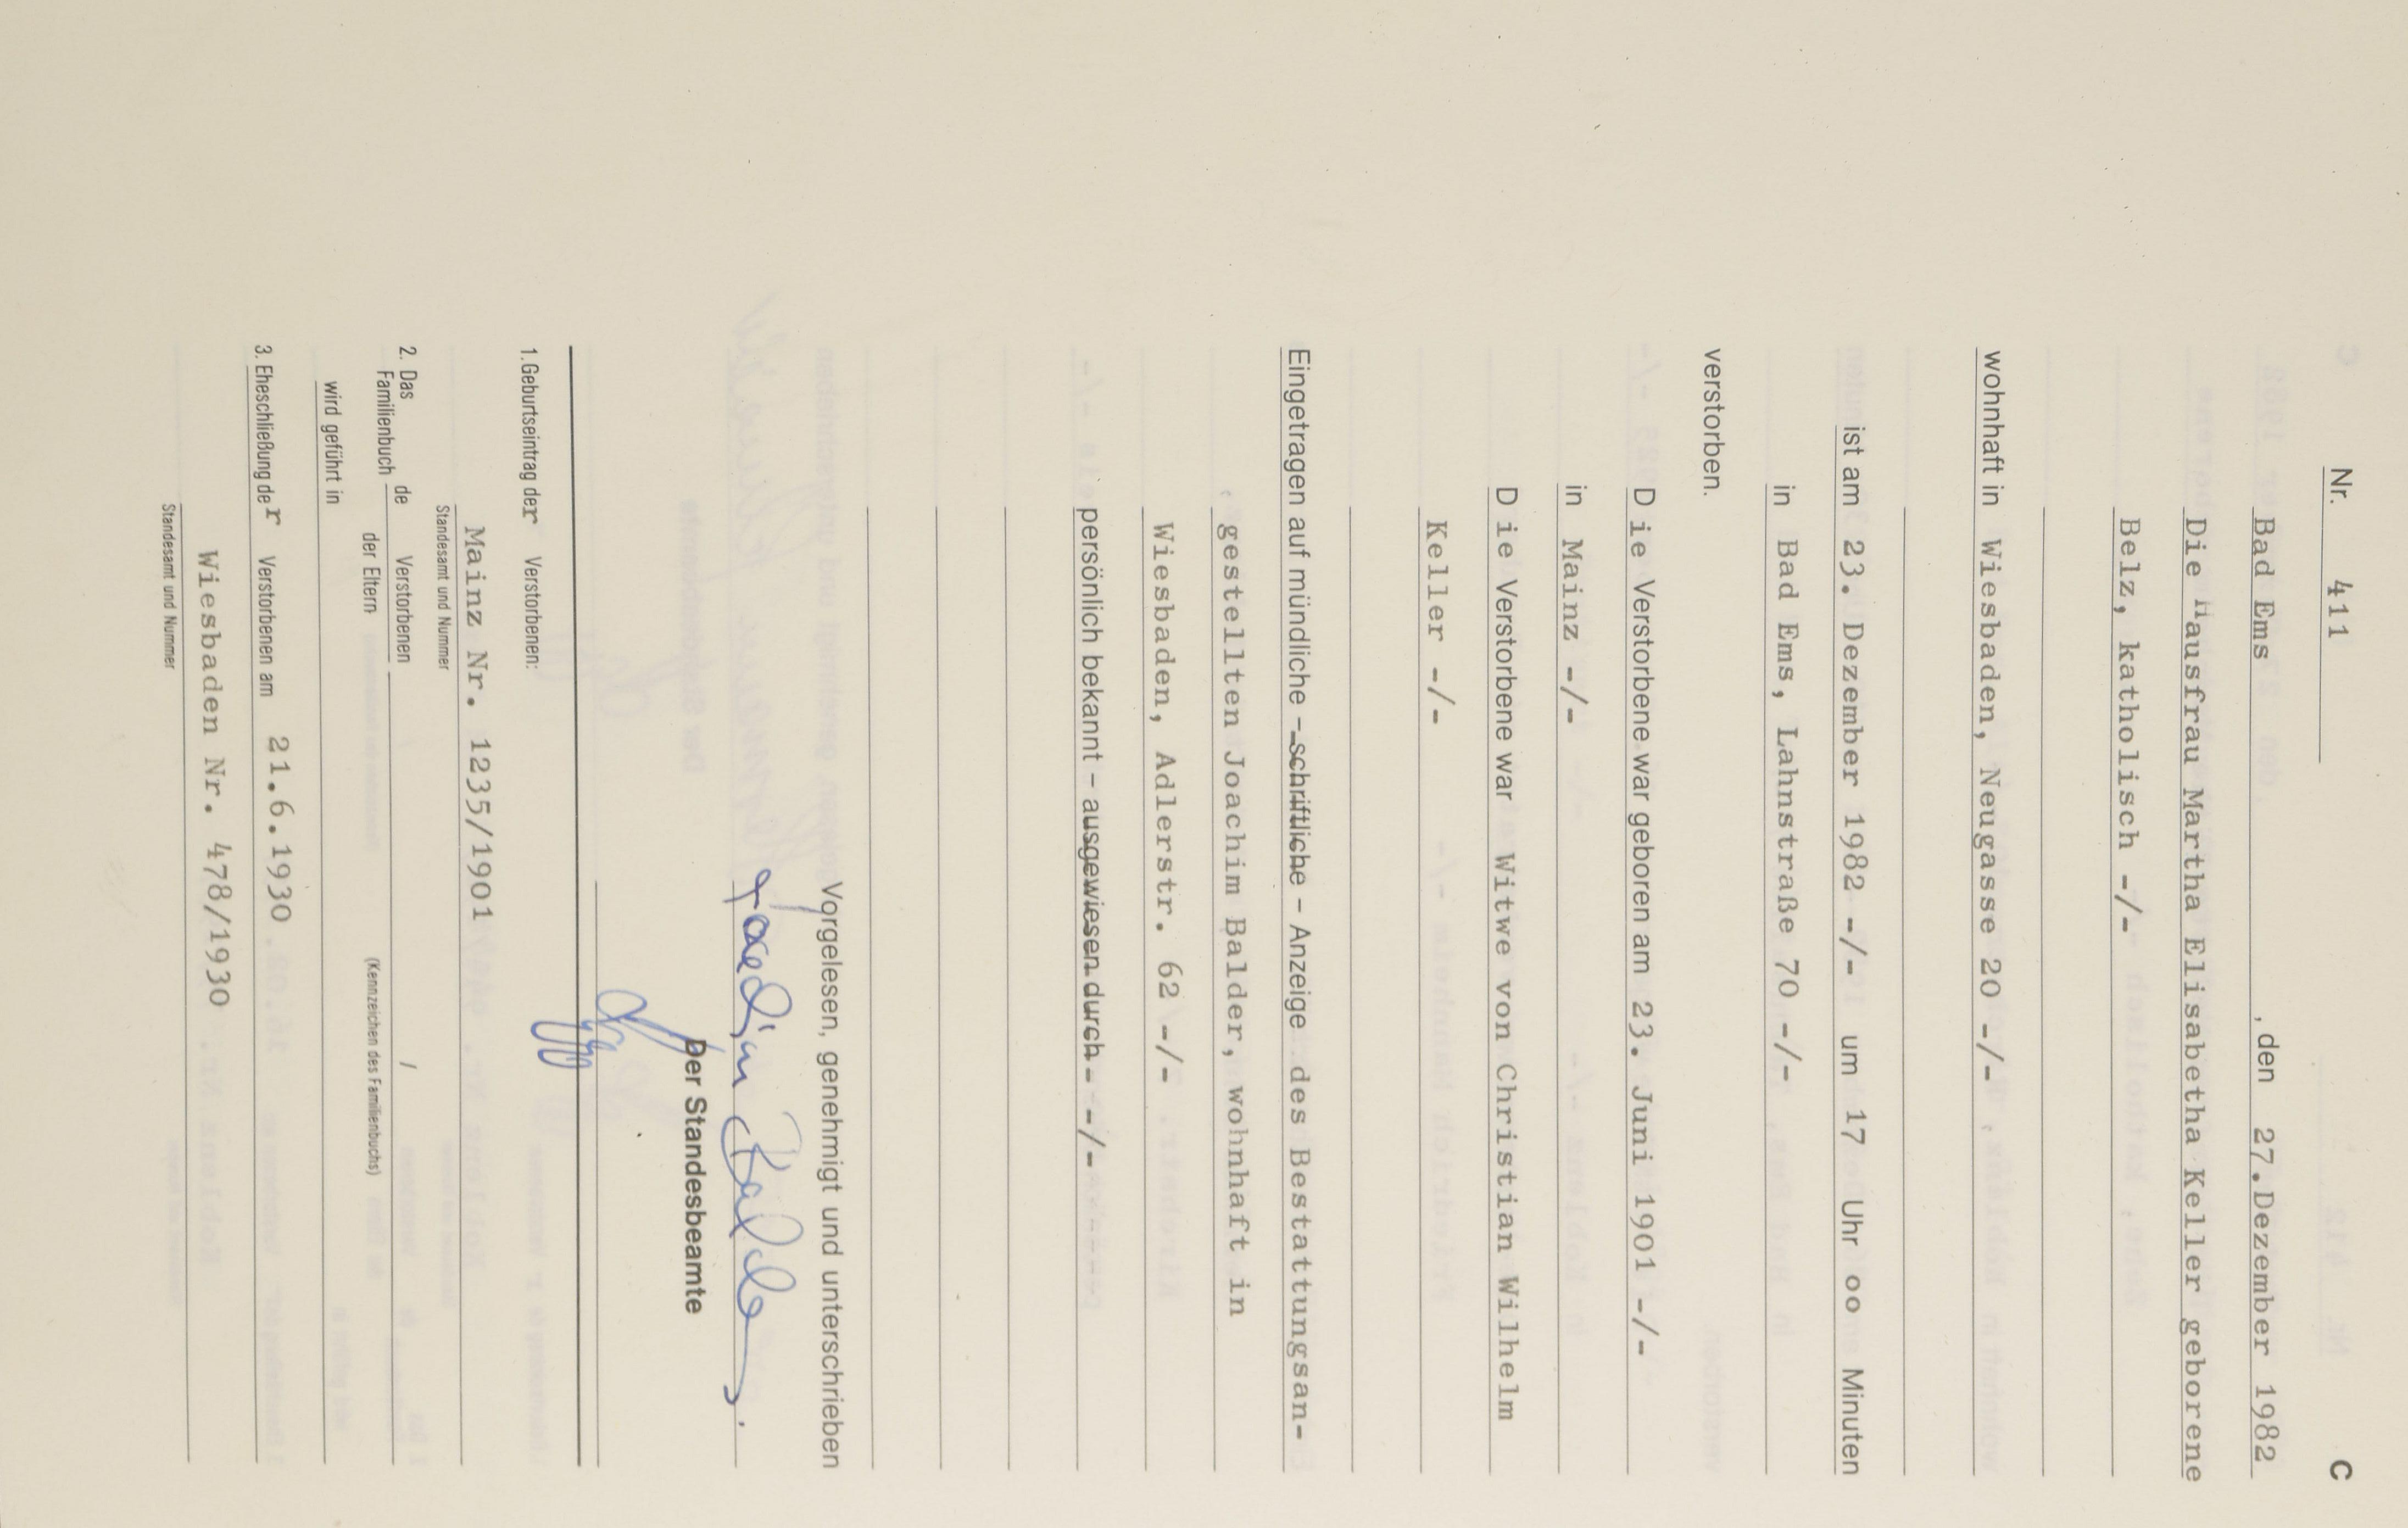 Nr. 411 C
Bad Ems , den 27.Dezember 1982
Die Hausfrau Martha Elisabetha Keller geborene
Belz, katholisch -/-
wohnhaft in Wiesbaden, Neugasse 20 -/-
ist am 23. Dezember 1982 -/- um 17 Uhr oo Minuten
in Bad Ems, Lahnstraße 70 -/-
verstorben.
D ie Verstorbene war geboren am 23. Juni 1901 -/-
in Mainz -/-
D ie Verstorbene war Witwe von Christian Wilhelm
Keller -/-
Eingetragen auf mündliche – schriftliche – Anzeige des Bestattungsan-
gestellten Joachim Balder, wohnhaft in
Wiesbaden, Adlerstr. 62 -/-
persönlich bekannt – ausgewiesen durch -/-
Vorgelesen, genehmigt und unterschrieben
Joachim Balder
Der Standesbeamte
1. Geburtseintrag der Verstorbenen:
Mainz Nr. 1235/1901
Standesamt und Nummer
2. Das Familienbuch de Verstorbenen /
der Eltern (Kennzeichen des Familienbuchs)
wird geführt in
3. Eheschließung der Verstorbenen am 21.6.1930
Wiesbaden Nr. 478/1930
Standesamt und Nummer